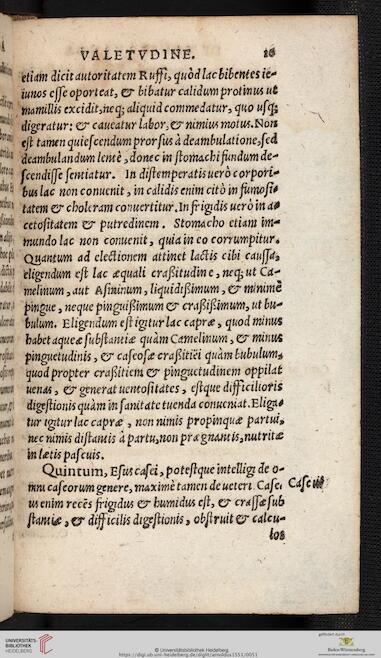 VALETVDINE. 20
etiam dicit autoritatem Ruffi, quòd lac bibentes ie-
iunos esse oporteat, & bibatur calidum protinus ut
mamillis excidit, neq; aliquid commedatur, quo usq;
digeratur: & caueatur labor, & nimius motus. Non
est tamen quiescendum prorsius à deambulatione, sed
deambulandum lentè, donec in stomachi fundum de-
scendisse sentiatur. In distemperatis uerò corpori-
bus lac non conuenit, in calidis enim citò in fumosi-
tatem & choleram conuertitur. In frigidis uerò in a-
cetositatem & putredinem. Stomacho etiam im-
mundo lac non conuenit, quia in eo corrumpitur.
Quantum ad electionem attinet lactis cibi caussa,
eligendum est lac æquali crassitudine, neq; ut Ca-
melinum, aut Asininum, liquidissimum, & minimè
pingue, neque pinguissimum & crassissimum, ut bu-
bulum. Eligendum est igitur lac capræ, quod minus
habet aqueæ substantiæ quàm Camelinum, & minus
pinguetudinis, & caseosæ crassitiei quàm bubulum,
quod propter crassitiem & pinguetudinem oppilat
uenas, & generat uentositates, estque difficilioris
digestionis quàm in sanitate tuenda conueniat. Eliga-
tur igitur lac capræ, non nimis propinquæ partui,
nec nimis distantis à partu, non prægnantis, nutritæ
in lætis pascuis.
Quintum, Esus casei, potestque intelligi de o-
mni caseorum genere, maximè tamen de ueteri. Case-
us enim recēs frigidus & humidus est, & crassæ sub
stantiæ, & difficilis digestionis, obstruit & calcu-
los
UNIVERSITÄTS-
BIBLIOTHEK
HEIDELBERG
© Universitätsbibliothek Heidelberg
https://digi.ub.uni-heidelberg.de/diglit/arnoldus1551/0051
gefördert durch
Baden-Württemberg